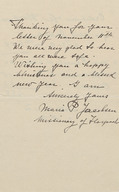 Thanking you for your
letter of November 11th
We were very glad to hear
you are were safe.
Wishing you a happy
and a
new year. I am
Sincerely Yours
Marie P. Jacobsen
Missionary of